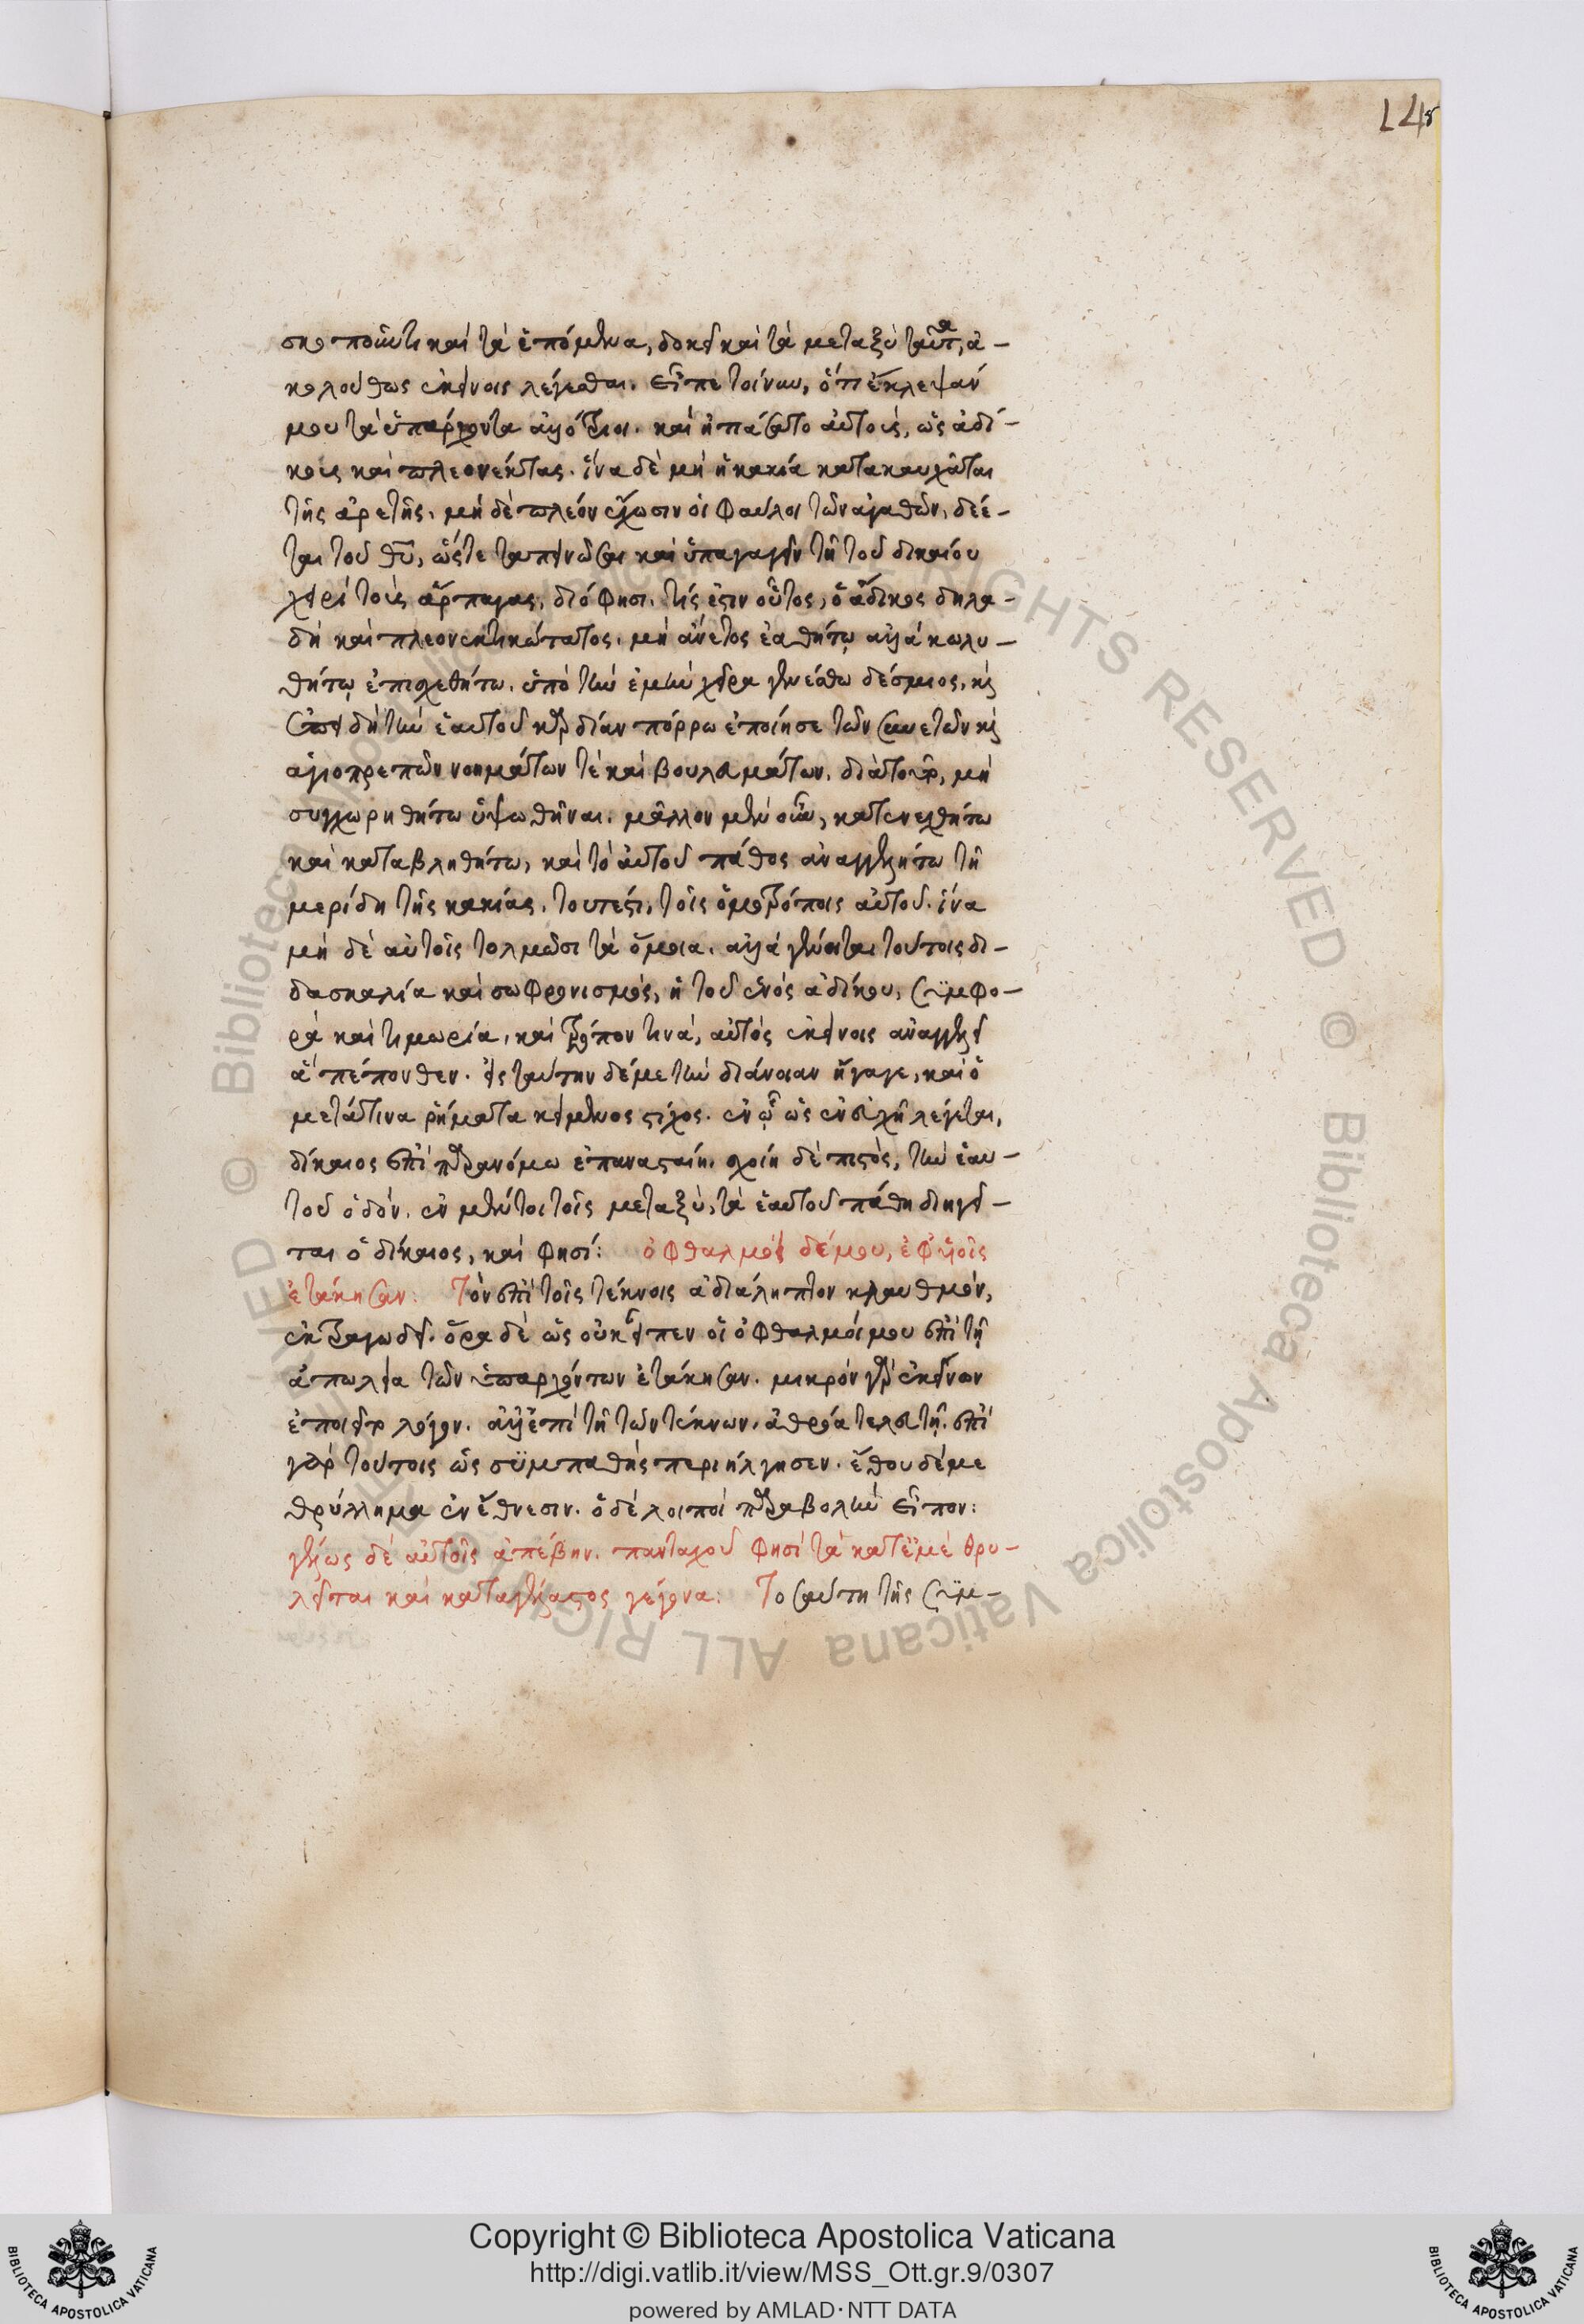 148
σκοποῦντι καὶ τὰ ἑπόμενα, δοκεῖ καὶ τὰ μεταξὺ ταῦτα, ἀ-
κολούθως ἐκείνοις λέγεσθαι. εἶπε τοίνυν, ὅτι ἔκλεψάν
μου τὰ ὑπάρχοντα ἀλλότριοι. καὶ ᾐτιάσατο αὐτοὺς, ὡς ἀδί-
κους καὶ πλεονέκτας. ἵνα δὲ μὴ ἡ κακία κατακαυχᾶται
τῆς ἀρετῆς, μὴ δὲ πλέον ἔχωσιν οἱ φαῦλοι τῶν ἀγαθῶν, δέε-
ται τοῦ θῦ, ὥστε ταπεινῶσαι καὶ ὑπαγαγεῖν τῇ τοῦ δικαίου
χειρὶ τοὺς ἅρπαγας, διό φησι. τίς ἐστιν οὗτος, ὁ ἄδικος δηλα-
δὴ καὶ πλεονεκτικώτατος. μὴ ἄνετος ἐαθήτω ἀλλὰ κωλυ-
θήτω ἐπισχεθήτω. ὑπὸ τὴν ἐμὴν χεῖρα γενέσθω δέσμιος, καὶ
ἐπειδὴ τὴν ἑαυτοῦ καρδίαν πόρρω ἐποίησε τῶν συνετῶν καὶ
ἁγιοπρεπῶν νοημάτων τὲ καὶ βουλευμάτων. διὰ τοῦτο, μὴ
συγχωρηθήτω ὑψωθῆναι. μᾶλλον μὲν οὖν, κατενεχθήτω
καὶ καταβληθήτω, καὶ τὸ αὐτοῦ πάθος ἀναγγελήτω τῇ
μερίδι τῆς κακίας. τουτέστι, τοῖς ὁμοτρόποις αὐτοῦ. ἵνα
μὴ δὲ αὐτοῖς τολμῶσι τὰ ὅμοια. ἀλλὰ γένηται τούτοις δι-
δασκαλία καὶ σωφρονισμὸς, ἡ τοῦ ἑνὸς ἀδίκου, συμφο-
ρὰ καὶ τιμωρία, καὶ τρόπον τινὰ, αὐτὸς ἐκείνοις ἀναγγελεῖ
ἃ πέπονθεν. εἰς ταύτην δέ με τὴν διάνοιαν ἤγαγε, καὶ ὁ
μετά τινα ῥήματα κείμενος στίχος. ἐν ᾧ ὡς ἐν εὐχῇ λέγεται,
δίκαιος ἐπὶ παρανόμω ἐπανασταίη. σχοίη δὲ πιστὸς, τὴν ἑαυ-
τοῦ ὁδόν. ἐν μέντοι τοῖς μεταξὺ, τὰ ἑαυτοῦ πάθη διηγεῖ-
ται ὁ δίκαιος, καὶ φησί: ὀφθαλμοὶ δέ μου, ἐφ᾽ υἱοῖς
ἐτάκησαν: Τὸν ἐπὶ τοῖς τέκνοις ἀδιάληπτον κλαυθμὸν,
ἐκτραγωδεῖ. ὅρα δὲ ὡς οὐκ εἶπεν οἱ ὀφθαλμοί μου ἐπὶ τῇ
ἀπωλεία τῶν ὑπαρχόντων ἐτάκησαν. μικρὸν γὰρ ἐκείνων
ἐποιεῖτο λόγον. ἀλλ᾽ ἐπὶ τῇ τῶν τέκνων, ἀθρόα τελευτῇ. ἐπὶ
γὰρ τούτοις ὡς συμπαθὴς περιήλγησεν. ἔθου δέ με
θρύλλημα ἐν ἔθνεσιν. ὁ δὲ λοιποὶ παραβολὴν εἶπον:
γέλως δὲ αὐτοῖς ἀπέβην. πανταχοῦ φησὶ τὰ κατ᾽ ἐμὲ θρυ-
λεῖται καὶ καταγέλαστος γέγονα: Τοσαύτη τῆς συμ-
Copyright © Biblioteca Apostolica Vaticana
http://digi.vatlib.it/view/MSS_Ott.gr.9/0307
powered by AMLAD·NTT DATA